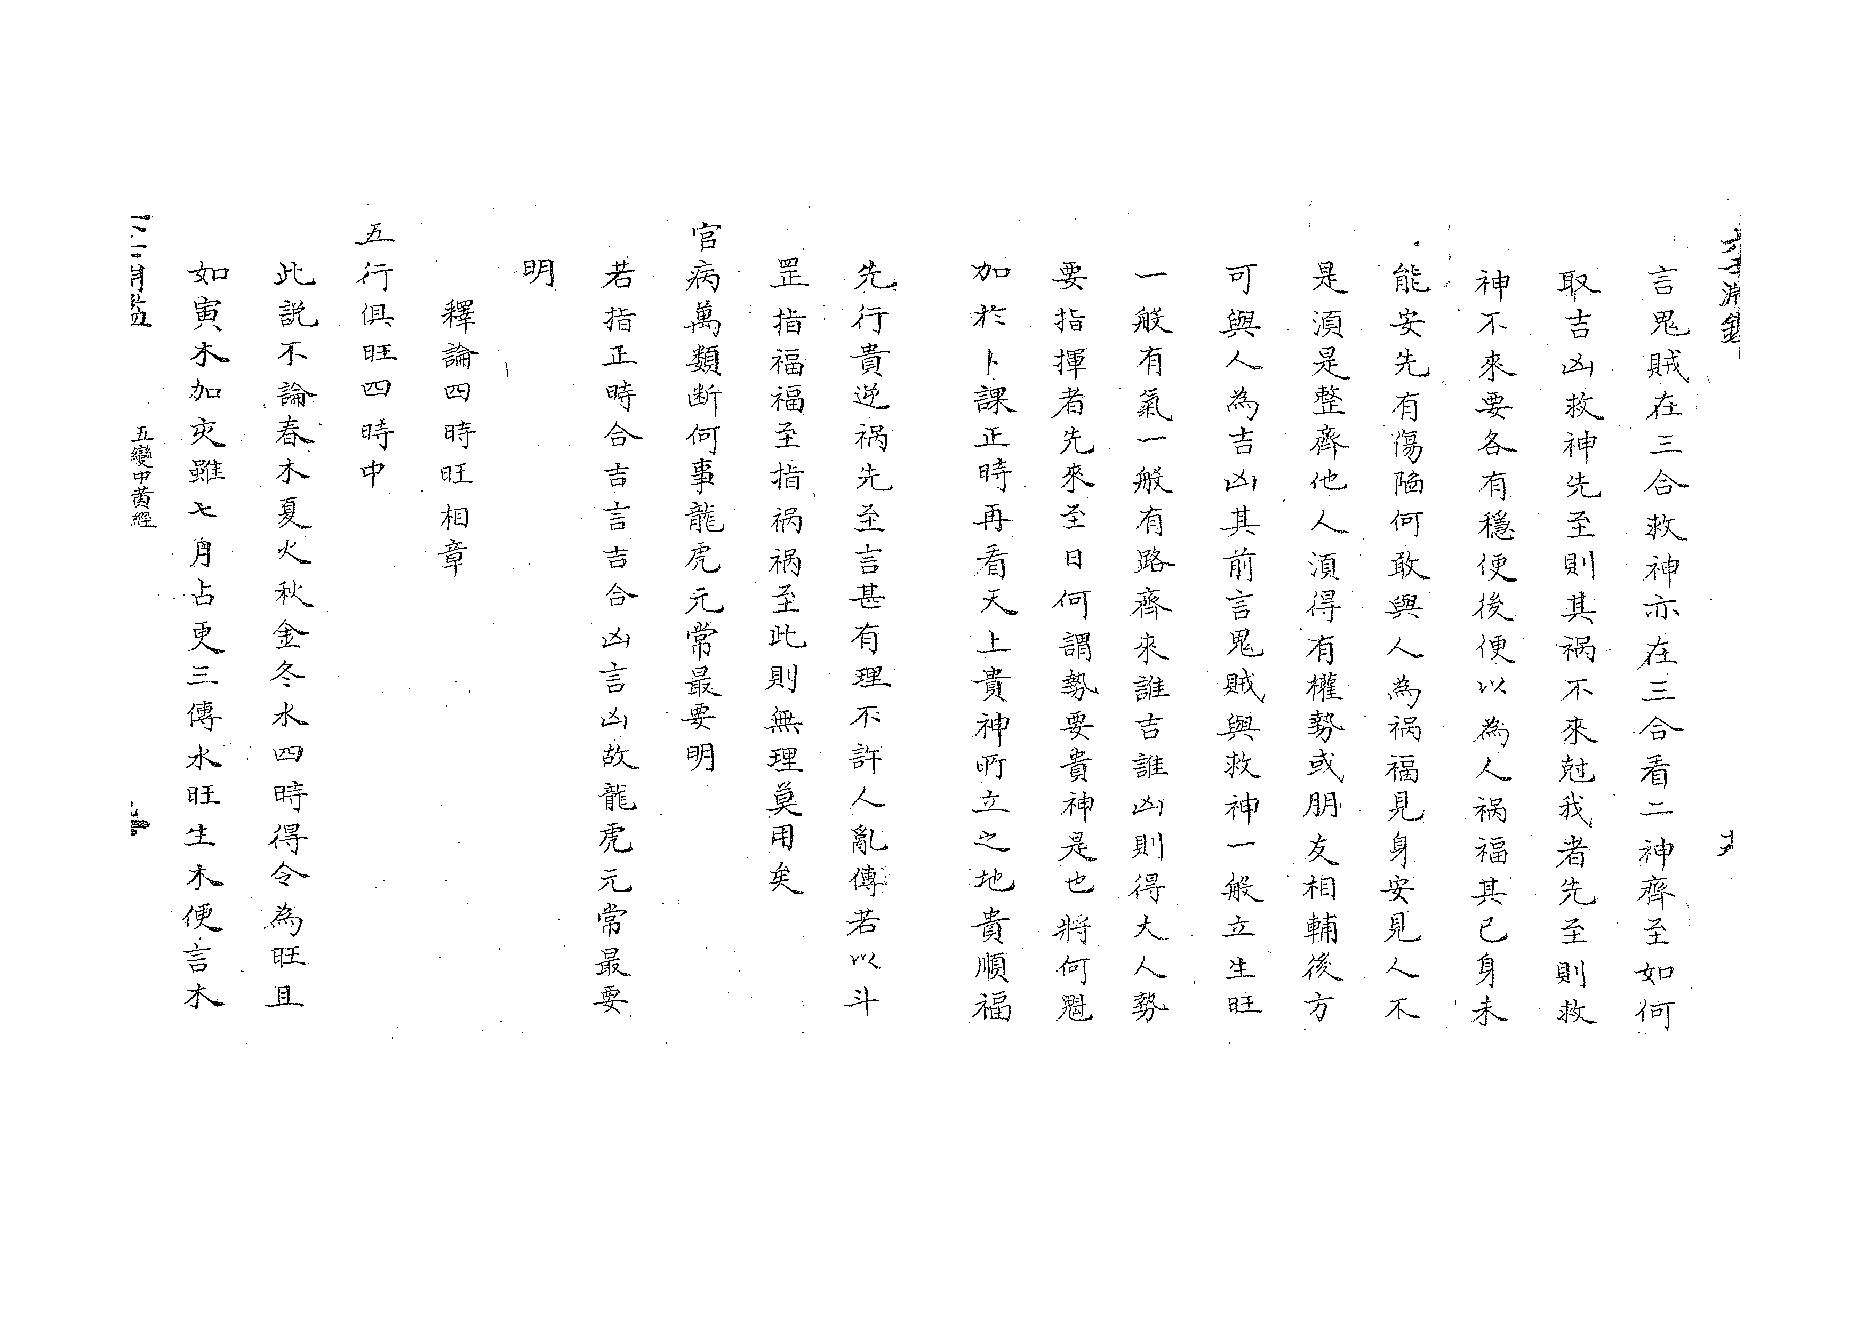 言鬼賊在三合救神亦在三合看二神齊至如何
取吉凶救神先至則其祸不來尅我者先至則救
神不來要各有穩便後便以為人祸福其已身未
能安先有傷陥何敢與人為祸福見身安見人不
是須是整齊他人須得有權勢或朋友相輔後方
可與人為吉凶其前言鬼賊與救神一般立生旺
一般有氣一般有路齊來誰吉誰凶則得大人勢
要指揮者先來至日何謂勢要貴神是也將何魁
加於卜課正時再看天上貴神所立之地貴順福
先行貴逆祸先至言甚有理不許人亂傳若以斗
罡指福福至指祸祸至此則無理莫用矣
官病萬類断何事龍虎元常最要明
若指正時合吉言吉合凶言凶故龍虎元常最要
明
釋論四時旺相章
五行俱旺四時中
此説不論春木夏火秋金冬水四時得令為旺且
如寅木加亥雖七月占更三傳水旺生木便言木
五變中黄經